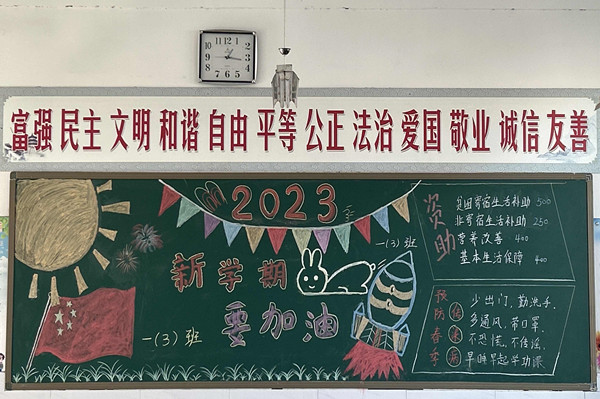 富强 民主 文明 和谐 自由 平等 公正 法治 爱国 敬业 诚信 友善
2023
一(3)班
新学期
要加油
一(3)班
资助
贫困寄宿生活补助 500
非寄宿生活补助 250
营养改善 400
基本生活保障 400
预防春季
传染病
少出门、勤洗手,
多通风、带口罩,
不恐慌、不传谣,
早睡早起学功课